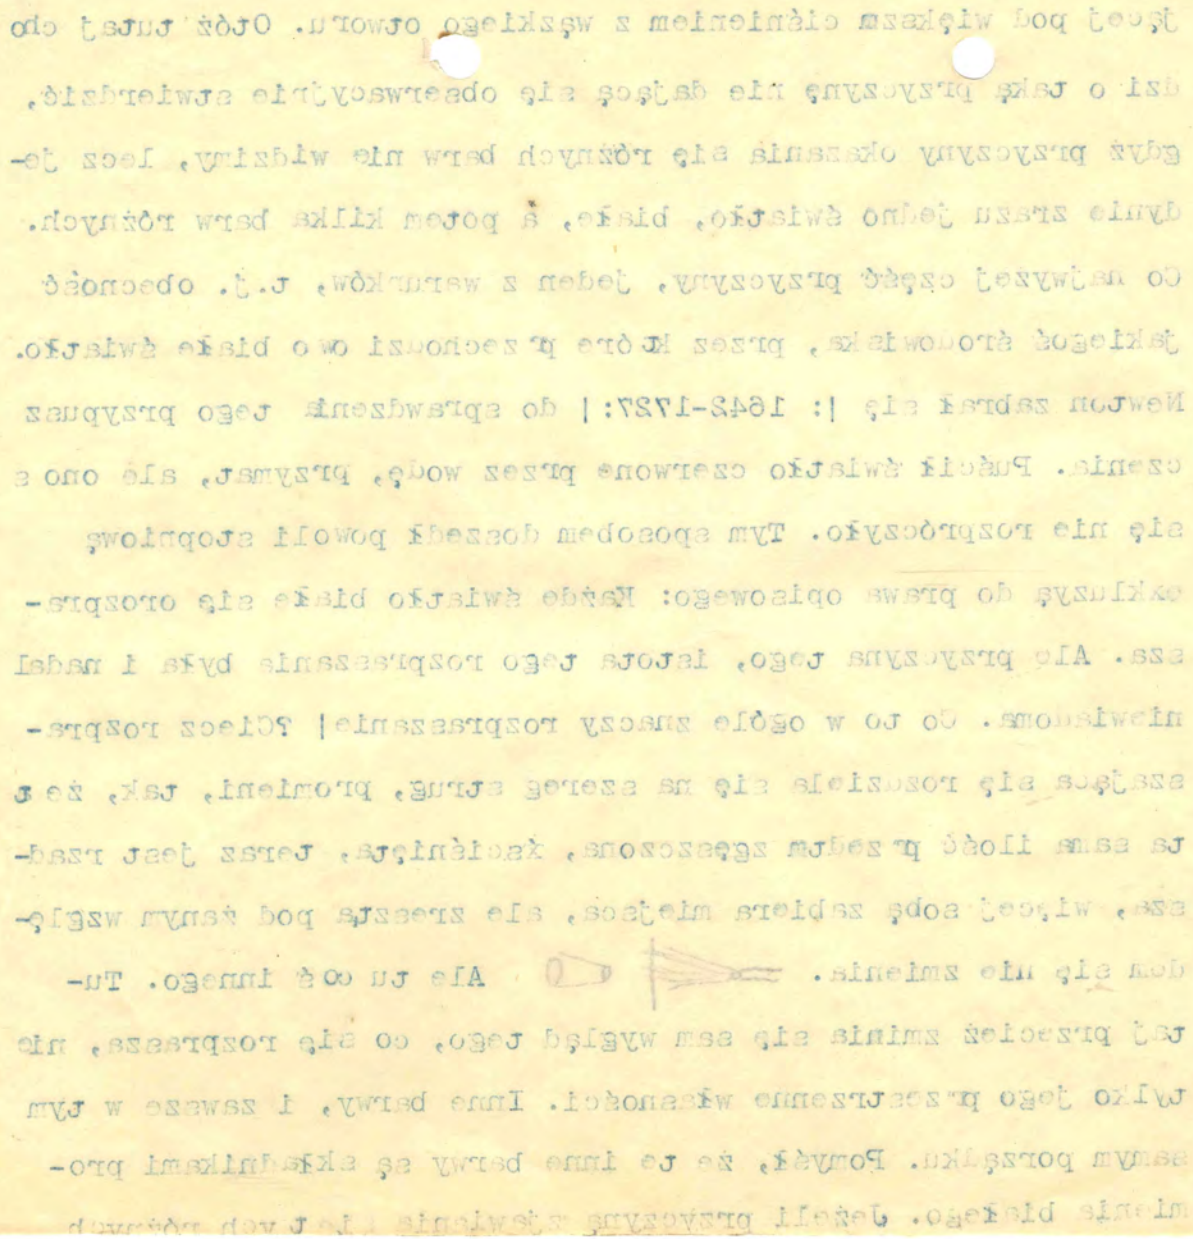 jącej pod większm ciśnieniem z wązkiego otworu. Otóż tutaj cho
dzi o taką przyczynę nie dającą się obserwacyjnie stwierdzić,
gdyż przyczyny okazania się różnych barw nie widzimy, lecz je-
dynie zrazu jedno światło, białe, a potem kilka barw różnych.
Co najwyżej część przyczyny, jeden z warunków, t.j. obecność
jakiegoś środowiska, przez które przechodzi owo białe światło.
Newton zabrał się |: 1642-1727:| do sprawdzenia tego przypusz
czenia. Puścił światło czerwone przez wodę, przymat, ale ono s
się nie rozpróczyło. Tym sposobem doszedł powoli stopniową
exkluzyą do prawa opisowego: Każde światło białe się orozpra-
sza. Ale przyczyna tego, istota tego rozpraszania była i nadal
niewiadoma. Co to w ogóle znaczy rozpraszanie| ?Ciecz rozpra-
szająca się rozdziela się na szereg strug, promieni, tak, że t
ta sama ilość przedtm zgęszczona, ściśnięta, teraz jest rzad-
sza, więcej sobą zabiera miejsca, ale zresztą pod żanym wzglę-
dem się nie zmienia. Ale tu coś innego. Tu-
taj przecież zminia się sam wygląd tego, co się rozprasza, nie
tylko jego przestrzenne własności. Inne barwy, i zawsze w tym
samym porządku. Pomysł, że te inne barwy są składnikami pro-
mienia białego. Jeżeli przyczyną zjawienia się tych różnych